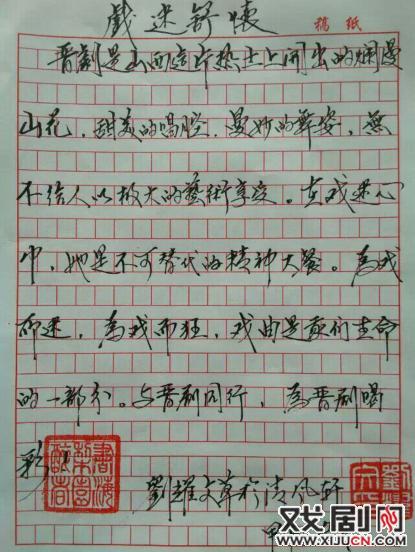 戲迷舒懷
稿紙
晋劇是山西這片热土上開出的爛漫
山花,甜美的唱腔,曼妙的舞姿,無
不给人以极大的藝術享受。在戏迷心
中,她是不可替代的精神大餐。為戏
而迷,為戏而狂,戏曲是我们生命
的一部分。与晋劇同行,為晋劇喝
彩!
書海
梨園
醉者
劉耀文草於清风轩
甲
戏剧网
www.XIJUCN.com